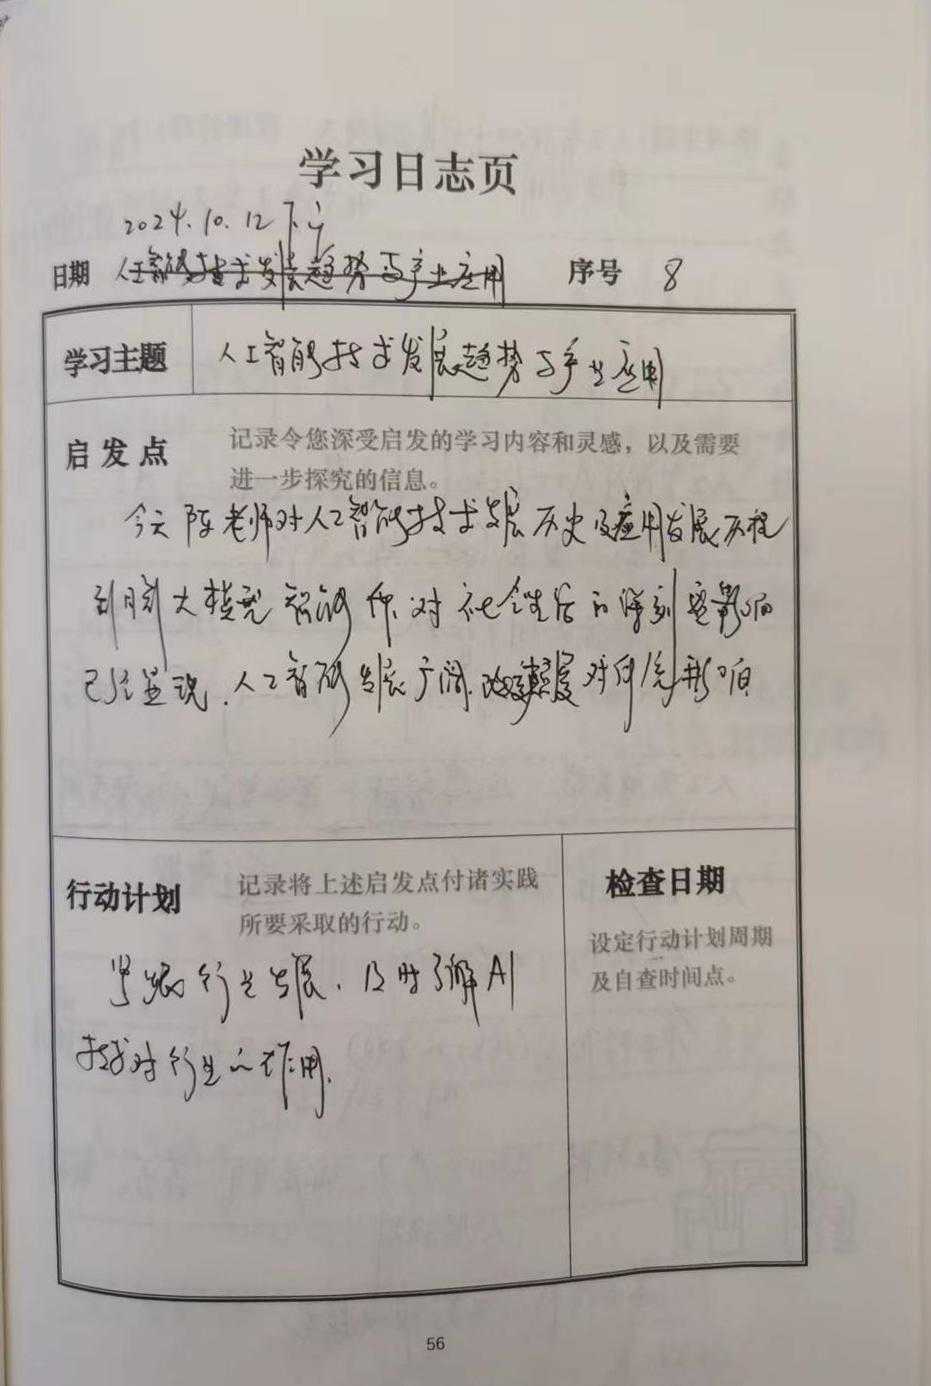 学习日志页
2024.10.12 下午
日期 人工智能技术发展趋势与产业应用 序号 8
学习主题 人工智能技术发展趋势与产业应用
启发点 记录令您深受启发的学习内容和灵感，以及需要
进一步探究的信息。
今天陈老师对人工智能技术发展历史及应用发展历程
到 大模型 智能体 对社会生活的深刻 影响
已经显现. 人工智能发展广阔. 对 影响
行动计划 记录将上述启发点付诸实践
所要采取的行动。
行业发展. 及时了解AI
技术对行业的作用.
检查日期
设定行动计划周期
及自查时间点。
56